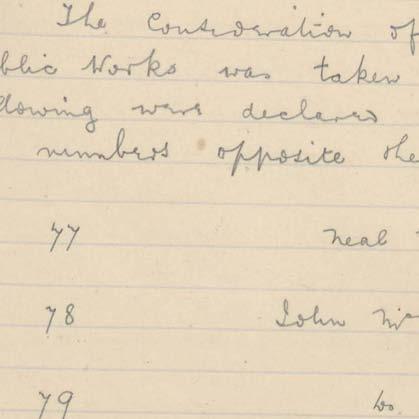 The Consideration of
blic Works was taken
llowing were declared
numbers opposite the
77 Neal
78 John Mc
79 Do